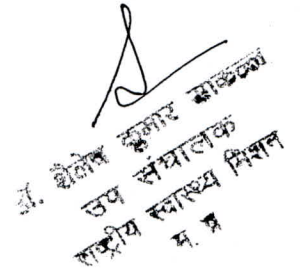 डॉ. शैलेष कुमार साकल्ले
उप संचालक
राष्ट्रीय स्वास्थ्य मिशन
म. प्र